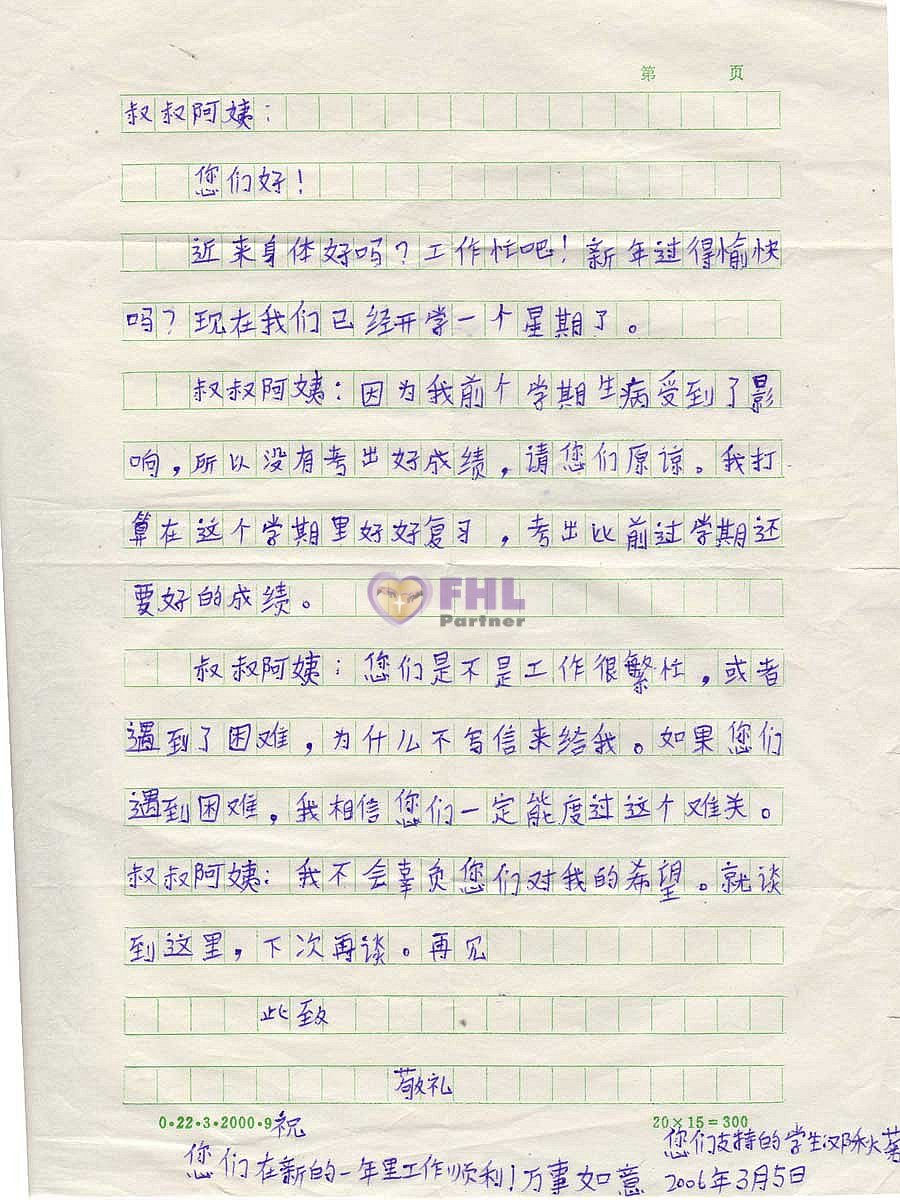 第 页
叔叔阿姨：
您们好！
近来身体好吗？工作忙吧！新年过得愉快
吗？现在我们已经开学一个星期了。
叔叔阿姨：因为我前个学期生病受到了影
响，所以没有考出好成绩，请您们原谅。我打
算在这个学期里好好复习，考出比前过学期还
要好的成绩。
FHL
Partner
叔叔阿姨：您们是不是工作很繁忙，或者
遇到了困难，为什么不写信来给我。如果您们
遇到困难，我相信您们一定能度过这个难关。
叔叔阿姨：我不会辜负您们对我的希望。就谈
到这里，下次再谈。再见
此致
敬礼
0·22·3·2000·9
20×15=300
祝
您们在新的一年里工作顺利！万事如意
您们支持的学生邓秋
2006年3月5日